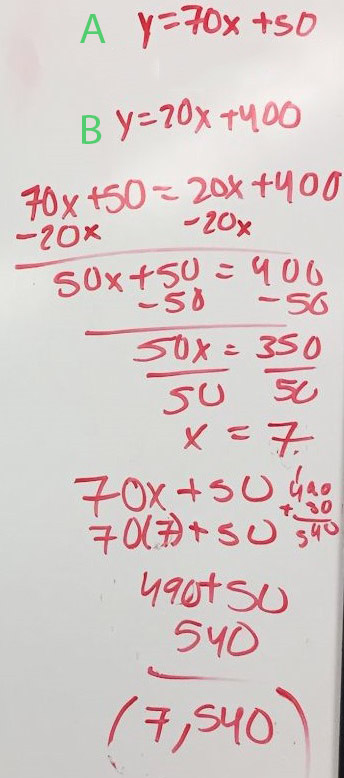 A y=70x+50
B y=20x+400
70x+50=20x+400
-20x -20x
50x+50=400
-50 -50
50x=350
50 50
x=7
70x+50
70(7)+50
490
+50
540
490+50
540
(7,540)